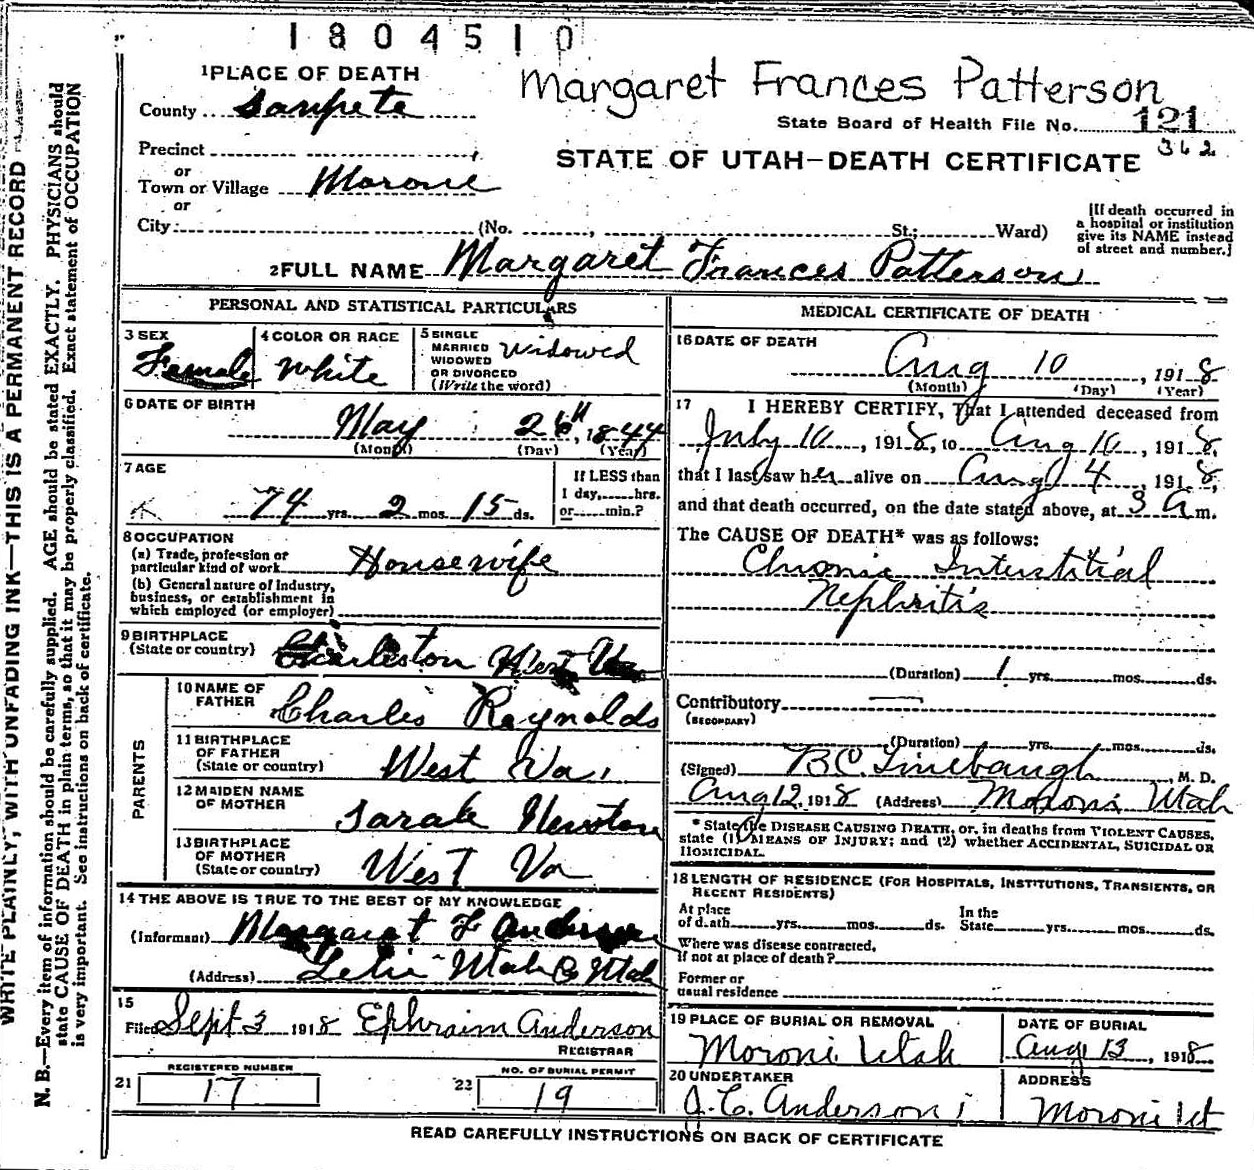 1804510
Margaret Frances Patterson
1 PLACE OF DEATH
County Sanpete
State Board of Health File No. 121
362
Precinct
or
Town or Village Moroni
or
STATE OF UTAH—DEATH CERTIFICATE
City (No. , St.; Ward)
[If death occurred in
a hospital or institution
give its NAME instead
of street and number.]
2 FULL NAME Margaret Frances Patterson
PERSONAL AND STATISTICAL PARTICULARS
3 SEX
Female
4 COLOR OR RACE
White
5 SINGLE
MARRIED
WIDOWED
OR DIVORCED
(Write the word)
Widowed
6 DATE OF BIRTH
May 26th, 1844
(Month) (Day) (Year)
7 AGE
74 yrs. 2 mos. 15 ds.
If LESS than
1 day, hrs.
or min.?
8 OCCUPATION
(a) Trade, profession or
particular kind of work Housewife
(b) General nature of Industry,
business, or establishment in
which employed (or employer)
9 BIRTHPLACE
(State or country) Charleston West Va
PARENTS
10 NAME OF
FATHER Charles Reynolds
11 BIRTHPLACE
OF FATHER
(State or country) West Va.
12 MAIDEN NAME
OF MOTHER Sarah Newton
13 BIRTHPLACE
OF MOTHER
(State or country) West Va
14 THE ABOVE IS TRUE TO THE BEST OF MY KNOWLEDGE
(Informant) Margarat F
(Address) Lehi Utah Co Utah
15
Filed Sept 3 1918 Ephraim Anderson
REGISTRAR
21 REGISTERED NUMBER
17
22 NO. OF BURIAL PERMIT
19
MEDICAL CERTIFICATE OF DEATH
16 DATE OF DEATH
Aug 10, 1918
(Month) (Day) (Year)
17 I HEREBY CERTIFY, That I attended deceased from
July 10, 1918, to Aug 10, 1918,
that I last saw her alive on Aug 4, 1918,
and that death occurred, on the date stated above, at 3 A m.
The CAUSE OF DEATH* was as follows:
Chronic Interstitial
Nephritis
(Duration) 1 yrs. mos. ds.
Contributory
(SECONDARY)
(Duration) yrs. mos. ds.
(Signed) B.C. Linebaugh, M. D.
Aug 12, 1918 (Address) Moroni Utah
* State the DISEASE CAUSING DEATH, or, in deaths from VIOLENT CAUSES,
state (1) MEANS OF INJURY; and (2) whether ACCIDENTAL, SUICIDAL OR
HOMICIDAL.
18 LENGTH OF RESIDENCE (FOR HOSPITALS, INSTITUTIONS, TRANSIENTS, OR
RECENT RESIDENTS)
At place
of death yrs. mos. ds.
In the
State yrs. mos. ds.
Where was disease contracted,
if not at place of death?
Former or
usual residence
19 PLACE OF BURIAL OR REMOVAL
Moroni Utah
DATE OF BURIAL
Aug 13, 1918
20 UNDERTAKER
J. C. Anderson
ADDRESS
Moroni Ut
READ CAREFULLY INSTRUCTIONS ON BACK OF CERTIFICATE
WRITE PLAINLY, WITH UNFADING INK—THIS IS A PERMANENT RECORD
N. B.—Every item of information should be carefully supplied. AGE should be stated EXACTLY. PHYSICIANS should
state CAUSE OF DEATH in plain terms, so that it may be properly classified. Exact statement of OCCUPATION
is very important. See instructions on back of certificate.